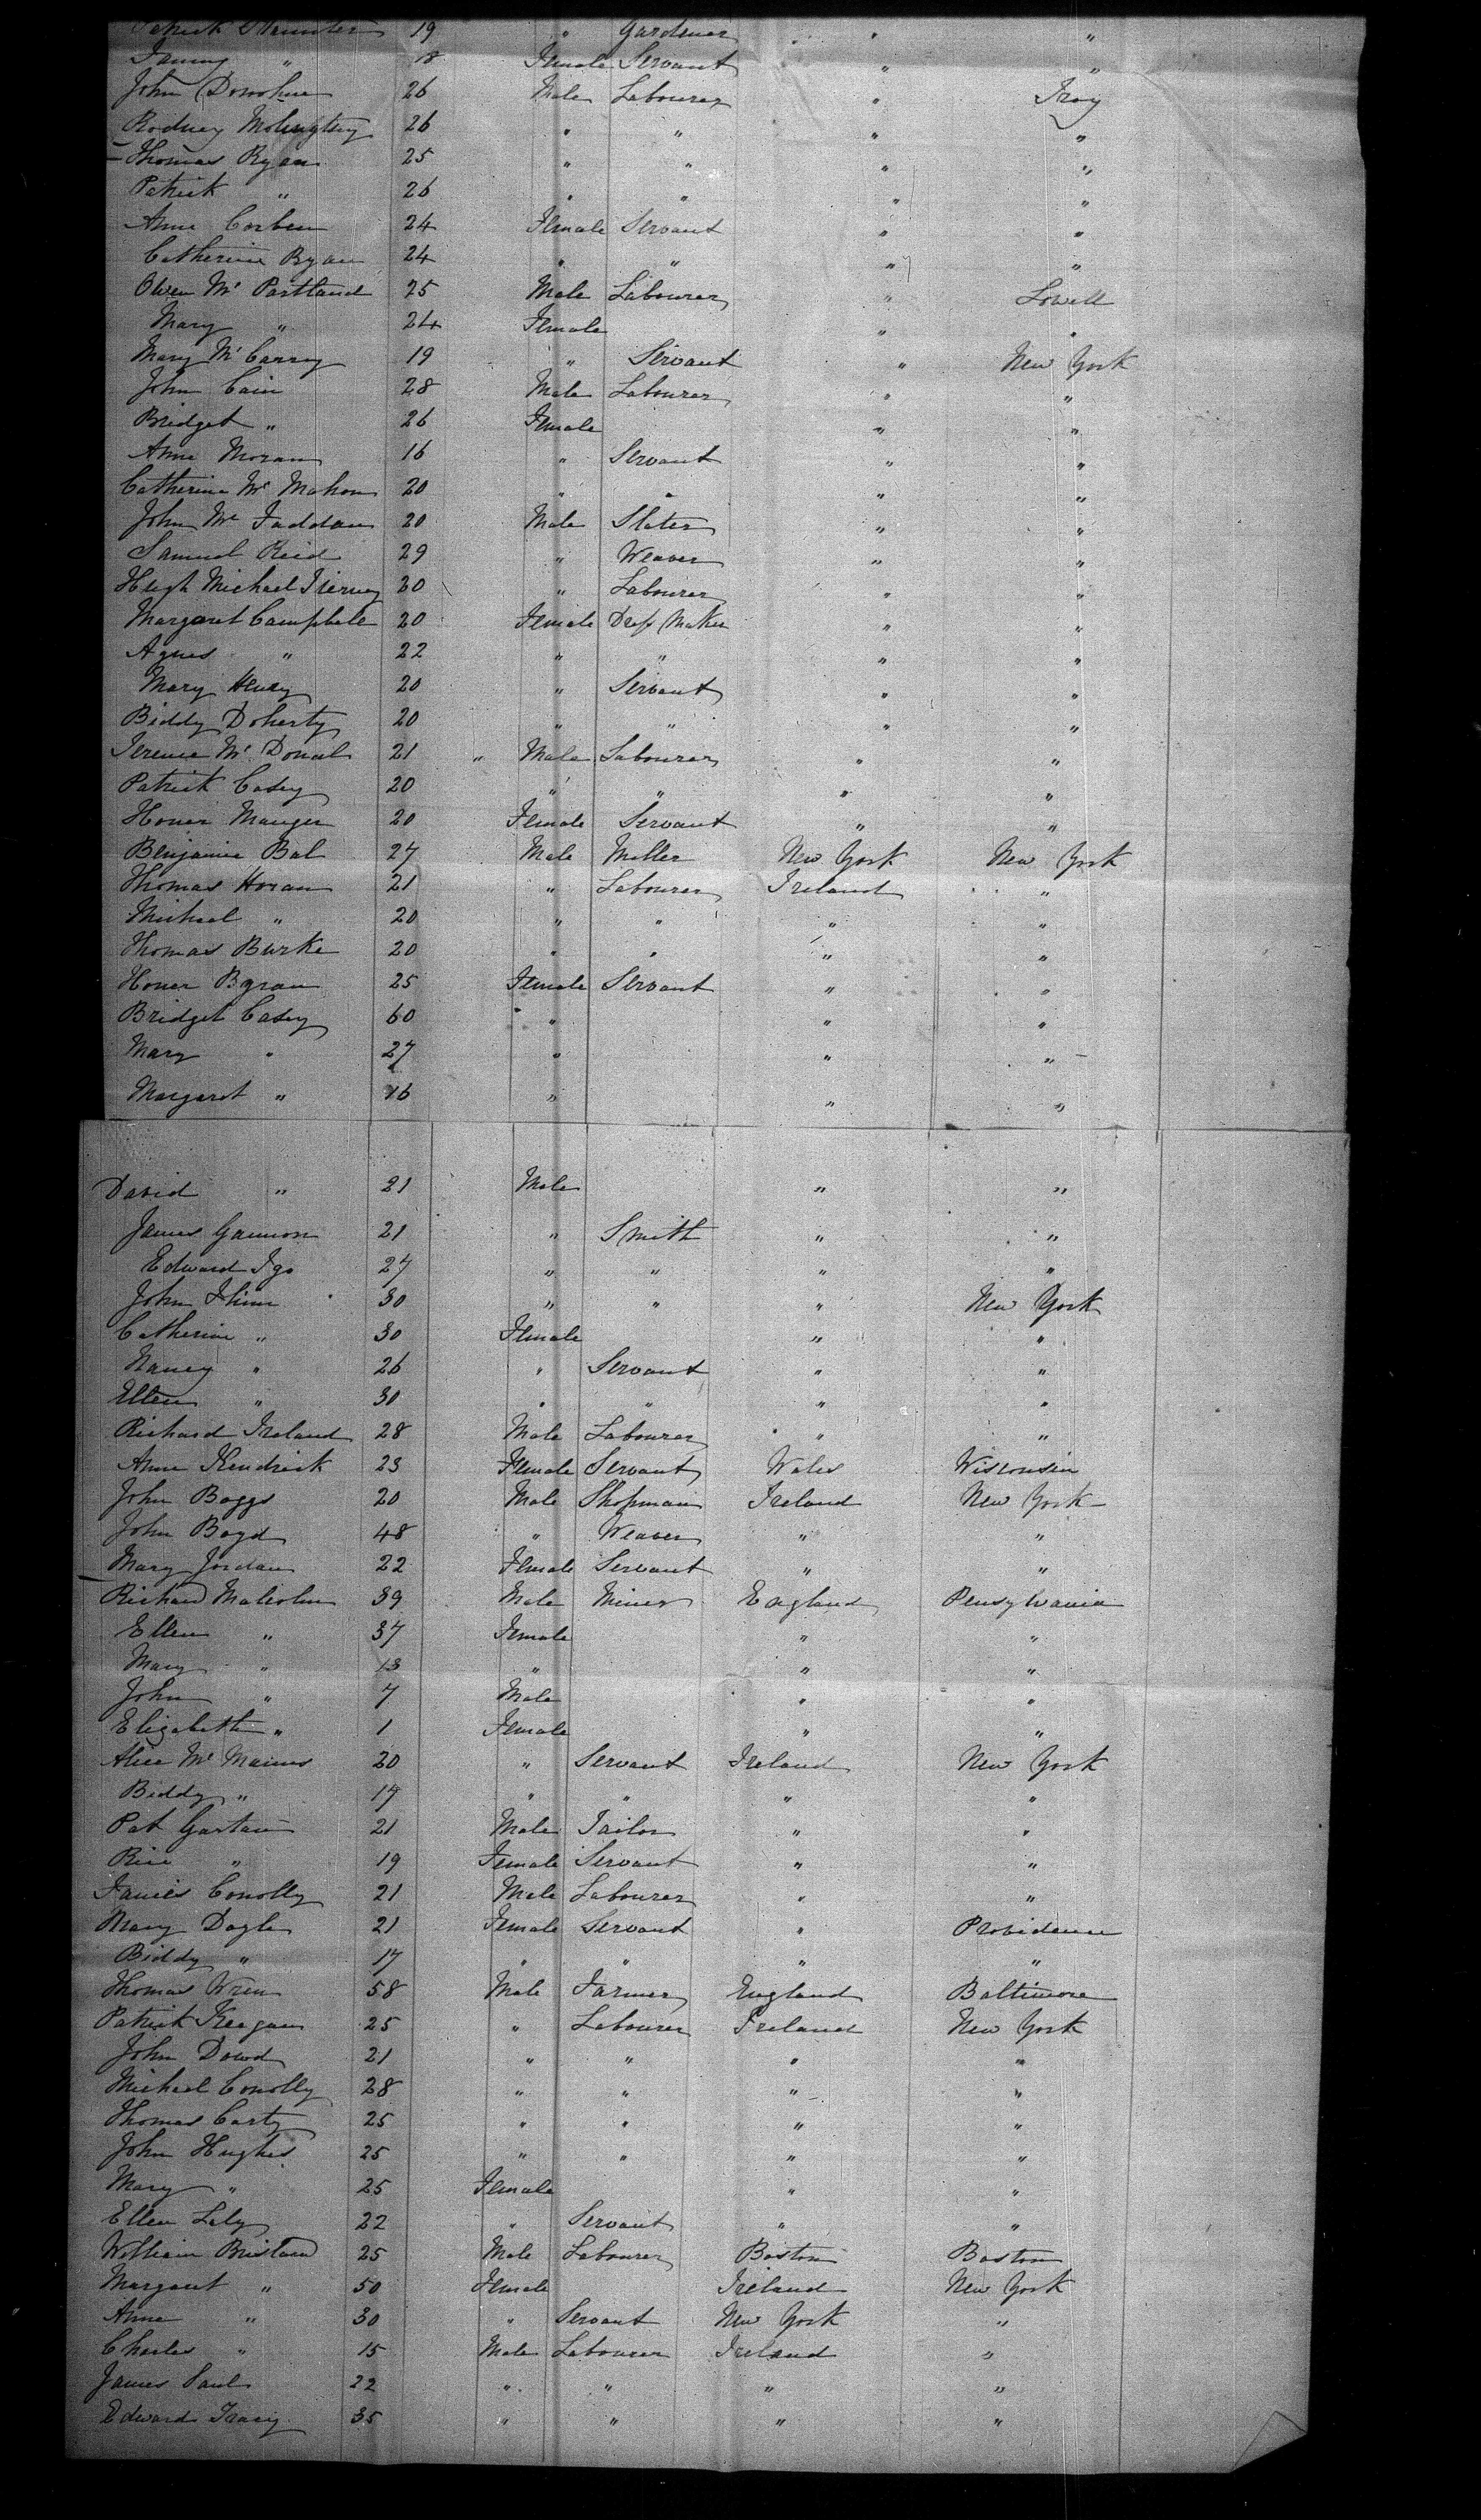 Patrick 19 " Gardener " "
Fanny " 18 Female Servant " "
John Donohue 26 Male Labourer " Troy
Rodney 26 " " " "
Thomas Ryan 25 " " " "
Patrick " 26 " " " "
Anne Corben 24 Female Servant " "
Catherine Ryan 24 " " " "
Owen Mc Partland 25 Male Labourer " Lowell
Mary " 24 Female " "
Mary Mc Carry 19 " Servant " New York
John Cain 28 Male Labourer " "
Bridget " 26 Female " "
Anne Moran 16 " Servant " "
Catherine Mc Mahon 20 " " " "
John Mc Faddan 20 Male Slater " "
Samuel Reid 29 " Weaver " "
Hugh Michael Tierney 20 " Labourer " "
Margaret Campbele 20 Female Dress Maker " "
Agnes " 22 " " " "
Mary Henry 20 " Servant " "
Biddy Doherty 20 " " " "
Terence Mc Donal 21 " Male Labourer " "
Patrick Casey 20 " " " "
Honer Manger 20 Female Servant " "
Benjamin Bal 27 Male Miller New York New York
Thomas Horan 21 " Labourer Ireland "
Michael " 20 " " " "
Thomas Burke 20 " " " "
Honer Byran 25 Female Servant " "
Bridget Casey 60 " " "
Mary " 27 " " "
Margaret " 16 " " "
David " 21 Male " "
James Gannon 21 " Smith " "
Edward Igo 27 " " " "
John Flinn 30 " " " New York
Catherine " 30 Female " "
Nancy " 26 " Servant " "
Ellen " 30 " " " "
Richard Ireland 28 Male Labourer " "
Anne Kendrick 23 Female Servant Wales Wisconsin
John Boggs 20 Male Shopman Ireland New York
John Boyd 48 " Weaver " "
Mary Jordan 22 Female Servant " "
Richard Malcolm 39 Male Miner England Pensylvania
Ellen " 37 Female " "
Mary " 13 " " "
John " 7 Male " "
Elizabeth " 1 Female " "
Alice Mc Manus 20 " Servant Ireland New York
Biddy " 17 " " " "
Pat Gartan 21 Male Tailor " "
" 19 Female Servant " "
James Conolly 21 Male Labourer " "
Mary Dogle 21 Female Servant " Providence
Biddy " 17 " " " "
Thomas Wren 58 Male Farmer England Baltimore
Patrick Keegan 25 " Labourer Ireland New York
John Dowd 21 " " " "
Michael Conolly 28 " " " "
Thomas Carty 25 " " " "
John Hughes 25 " " " "
Mary " 25 Female " "
Ellen Laly 22 " Servant " "
William 25 Male Labourer Boston Boston
Margaret " 50 Female Ireland New York
Anne " 30 " Servant New York "
Charles " 15 Male Labourer Ireland "
James Paul 22 " " " "
Edward Tracy 35 " " " "